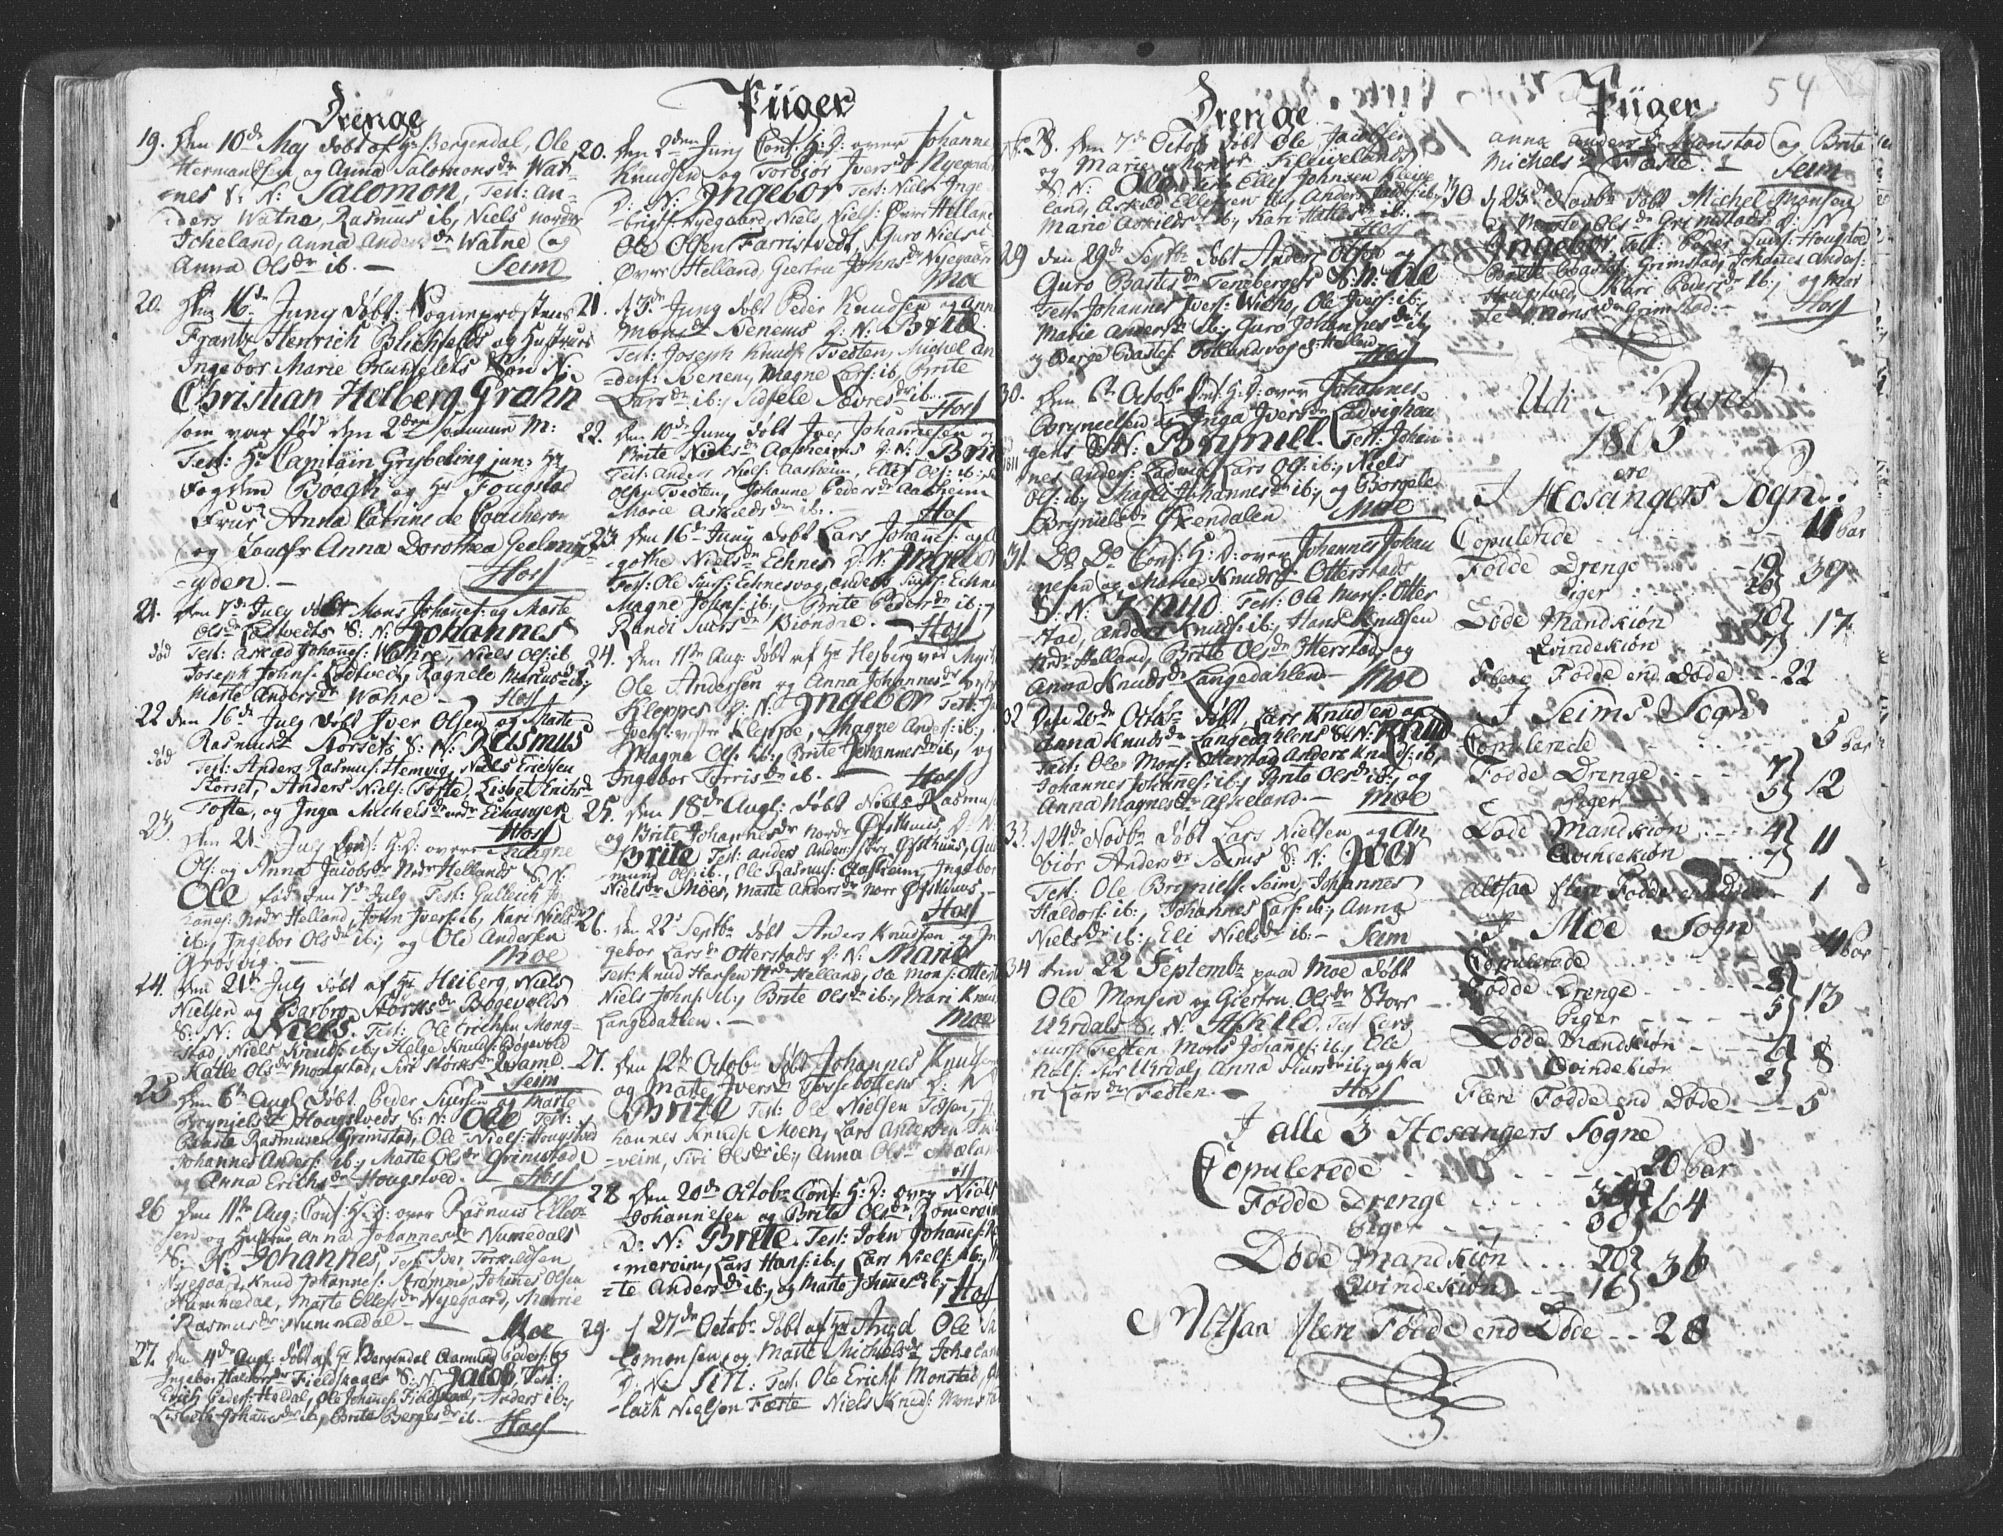 Drenge
19. Den 10de Maj døbt af Hr Bergendal, Ole
Hermandsen og Anna Salomonsdr Wat-
nes S: N: Salomon, Test: An-
ders Watne, Rasmus ib:, Niels nordre
Icheland, Anna Andersdr Watne og
Anna Olsdr ib. — Seim
20. Den 16de Juny døbt Sognepræstens
Frantz Henrich Blichfeldts og Hustrues
Ingebor Marie Blichfeldts Søn N:
Christian Helberg Grahn
som var fød den 2den samme M:
Test: Hr Captain jun: Hr
Fogden Boegh og Hr Fougstad
Frue Anna Catrine de
og Jomfr Anna Dorothea
yden. — Hosf
21. Den 7de July døbt Mons Johannes: og Marte
død Olsdr S: N: Johannes
Test: Askild Johannes: Wahre, Niels Ols: ib.
Joseph Johns: Ragnele Marcusdr ib:,
Marte Andersdr Wahre — Hosf
22 den 16de July døbt Iver Olsen og Marte
død Rasmusdr Storsets S: N: Rasmus
Test: Anders Rasmus: Hemvig, Niels Erichsen
Storset, Anders Niels: Tofte, Lisbet
Tofte, og Inga Michelsdr nedre Echanger
Hosf
23. Den 21de July Conf: H: D: over Magne
Ols: og Anna Jacobsdr Nedr Hellands S: N:
Ole fød den 7de July Test:
hanes: Nedr Helland, John Ivers: ib, Kari Nielsdr
ib:, Ingebor Olsdr ib:, og Ole Andersen
Moe
24. Den 21de July døbt af Hr Heiberg, Niels
Nielsen og Barbro Størksdr Bøgevolds
S: N: Niels. Test: Ole Erichsen Mong-
stad, Niels Knuds: ib:, Helge Knuds: Bøgevold
Kalle Olsdr Mongstad, Siri Størksdr
Seim
25 Den 6te Aug døbt Peder Siursen og Marte
Brynielsdr Hougstveds S: N: Ole Test:
Baste Rasmusen Grimstad, Ole Niels: Hougstved
Johannes Anders: ib:, Marte Olsdr Grimstad
og Anna Erichsdr Hougstved. — Hosf
26 Den 11te Aug: Conf: H: D: over Rasmus Ellev
sen og Hustrue Anna Johannesdr Numedals
S: N: Johannes, Test: Iver
Nyegaard, Knud Johannes: Strømme, Johannes Olsen
Nummedal, Marte Ellefsdr Nyegaard, Marie
Rasmusdr Nummedal — Moe
27. Den 4de Aug: døbt af Hr Bergendal Aamund Peders: og
Ingebor Haldorsdr Fieldskaget S: N: Jacob Test:
Erich Peders: Haldal, Ole Johannes: Anders ib:,
Lisbete Johannesdr ib:, Brite Bergesdr ib: — Hosf
Piiger
20. Den 2den Juny Conf: H: D: over Johanne
Knudsen og Torbiør Iversdr Nyegaa
D: N: Ingebor Test: Niels Inge
brigts: Nyegaard, Niels Niels: Øvre Helland
Ole Olsen Farristvedt, Guro Niels:
Øvre Helland, Giertru Johnsdr Nyegaar
Moe
21. d 3de Juny døbt Peder Knudsen og Ann
Monsdr Benems D: N: Brite
Test: Joseph Knuds: Tvedten, Michel An
ders: Benem, Magne Lars: ib, Brite
Larsdr ib:, Sidsele Sævresdr ib. Hosf
22. Den 10de Juny døbt Iver Johannesen
Brite Nielsdr Aasheims D: N: Brit
Test: Anders Niels: Aasheim, Ellef Ols: ib:,
Olsen Tvedten, Johanne Pedersdr Aasheim
Marie Askieldsdr ib: — Hosf
23. Den 16de Juny døbt Lars Johannes: og
gothe Nielsdr Echnes D: N: Ingebor
Test: Ole Siurs: Echnesvog, Anders Siurs: Echne
Magne Johns: ib:, Brite Pedersdr ib:,
Randi Siursdr Biondne. — Hosf
24. Den 11te Aug: døbt af Hr Heiberg
Ole Andersen og Anna Johannesdr
Kleppes D: N: Ingebor Test:
Ivers: vestre Kleppe, Magne Anders: ib:,
Magne Ols: ib:, Brite Johannesdr ib:, og
Ingebor Torrisdr ib. — Hosf
25. Den 18de Aug: døbt Niels Rasmus
og Brite Johannesdr nordr Østhuus, D: N
Brite Test: Anders Anders: Stor Østhuus, Gud
mund Ols: ib:, Ole Rasmus: Aasheim, Ingebor
Nielsdr Moes, Marte Andersdr norr Østhuus
Hosf
26. Den 22de Septbr døbt Anders Knudsen og In
gebor Larsdr Otterstads D: N: Marie
Test: Knud Hansen Nedr Helland, Ole Mons: Otterst
Niels Johns: ib:, Brite Olsdr ib:, Mari Knud
Langedahlen. — Moe
27. Den 12te Octobr døbt Johannes Knudsen
og Marte Iversdr D: N
Brite Test: Ole Nielsen
hannes Knuds: Moen, Lars Andersen
veim, Siri Olsdr ib:, Anna Olsdr
Hosf
28 Den 20de Octobr Conf: H: D: over Niels
Johannesen og Brite Olsdr Romereim
D: N: Brite. Test: John Johannes:
mereim, Lars Hans: ib:, Lars Niels: ib:,
te Andersdr ib:, og Marte Johannesdr ib: Hosf
29. d 27de Octobr døbt af Hr Strud Ole Sa
lomonsen og Marte Michelsdr Ichelan
D: N: Siri. Test: Ole Erichs: Monstad,
lach Nielsen Fæste Niels Knuds: Monsta
54
Drenge
28. Den 7de Octobr døbt Ole Jacobsen
og Marie Monsdr Kleivelands
S: N: Ole Test: Ellef Johnsen Kleive
land, Askild Ellefsen ib, Anders Larsen ib:,
Marie Askildsdr ib:, Kari Hallesdr ib: —
Hosf
29 den 29de Septbr døbt Anders Olsen og
Guro Bastesdr Tenebergets S: N: Ole
Test: Johannes Ivers: Wichne, Ole Ivers: ib:,
Marie Andersdr ib:, Guro Johannesdr ib:,
og Berge Bastes: Hosf
30. Den 6te Octobr Conf: H: D: over Johannes
Brynielsen og Inga Iversdr Ladvighau
gens S: N: Bryniel. Test: Johan
nes Anders: Ladvig, Lars Ols: ib:, Niels
Ols: ib:, Magli Johannesdr ib:, og Borgele
Brynielsdr Øxendalen Moe
31. Do Do Conf: H: D: over Johannes Johan
nesen og Marie Knudsdr Otterstads
S: N: Knud. Test: Ole Mons: Otter
stad, Anders Knuds: ib:, Hans Knudsen
Nedr Helland, Brite Olsdr Otterstad, og
Anna Knudsdr Langedahlen — Moe
32 Den 20de Octobr døbt Lars Knudsen og
Anna Knudsdr Langedahlens S: N: Knud
Test: Ole Mons: Otterstad, Anders Knuds: ib,
Johannes Johannes: ib:, Brite Olsdr ib:, og
Anna Magnesdr Askeland. — Moe
33. d 24de Novbr døbt Lars Nielsen og An
biør Andersdr Seims S: N: Iver
Test: Ole Bryniels: Seim, Johannes
Haldors: ib:, Johannes Lars: ib:, Anna
Nielsdr ib:, Eli Nielsdr ib: — Seim
34 den 22 Septembr paa Moe døbt
Ole Monsen og Giertru Olsdr Stor
Uhrdals S: N: Askild. Test Lars
Siurs: Festen Mons Johannes: ib:, Ole
Hals: Stor Uhrdal, Anna Siursdr ib:, og Ka
ri Larsdr Festen. — Hosf
Piiger
Anna Andersdr Monstad og Brite
Michelsdr Fæste. — Seim
30. d 23de Novbr døbt Michel Monsen
og Marte Olsdr Grimstads D: N:
Ingebor Test: Peder Siurs: Hougstved
Baste Bastes: Grimstad, Johannes Anders:
Hougstved, Kari Pedersdr ib:, og Mar
te Monsdr Grimstad. — Hosf
Udi Aaret
1805
ere
I Hosangers Sogn.
Copulerede 11 Par
Fødde Drenge 19
Piger 20 } 39
Døde Mandkiøn 10
Qvindekiøn 7 } 17
Flere Fødde end Døde — 22
I Seims Sogn
Copulerede 5 Par
Fødde Drenge 7
Piger 5 } 12
Døde Mandkiøn 4
Qvindekiøn 7 } 11
Altsaa flere Fødde end Døde — 1
I Moe Sogn
Copulerede 4 Par
Fødde Drenge 8
Piger 5 } 13
Døde Mandkiøn 6
Qvindekiøn 2 } 8
Flere Fødde end Døde — 5
I alle 3 Hosangers Sogne
Copulerede 20 Par
Fødde Drenge 34
Piger 30 } 64
Døde Mandkiøn 20
Qvindekiøn 16 } 36
Altsaa flere Fødde end Døde — 28